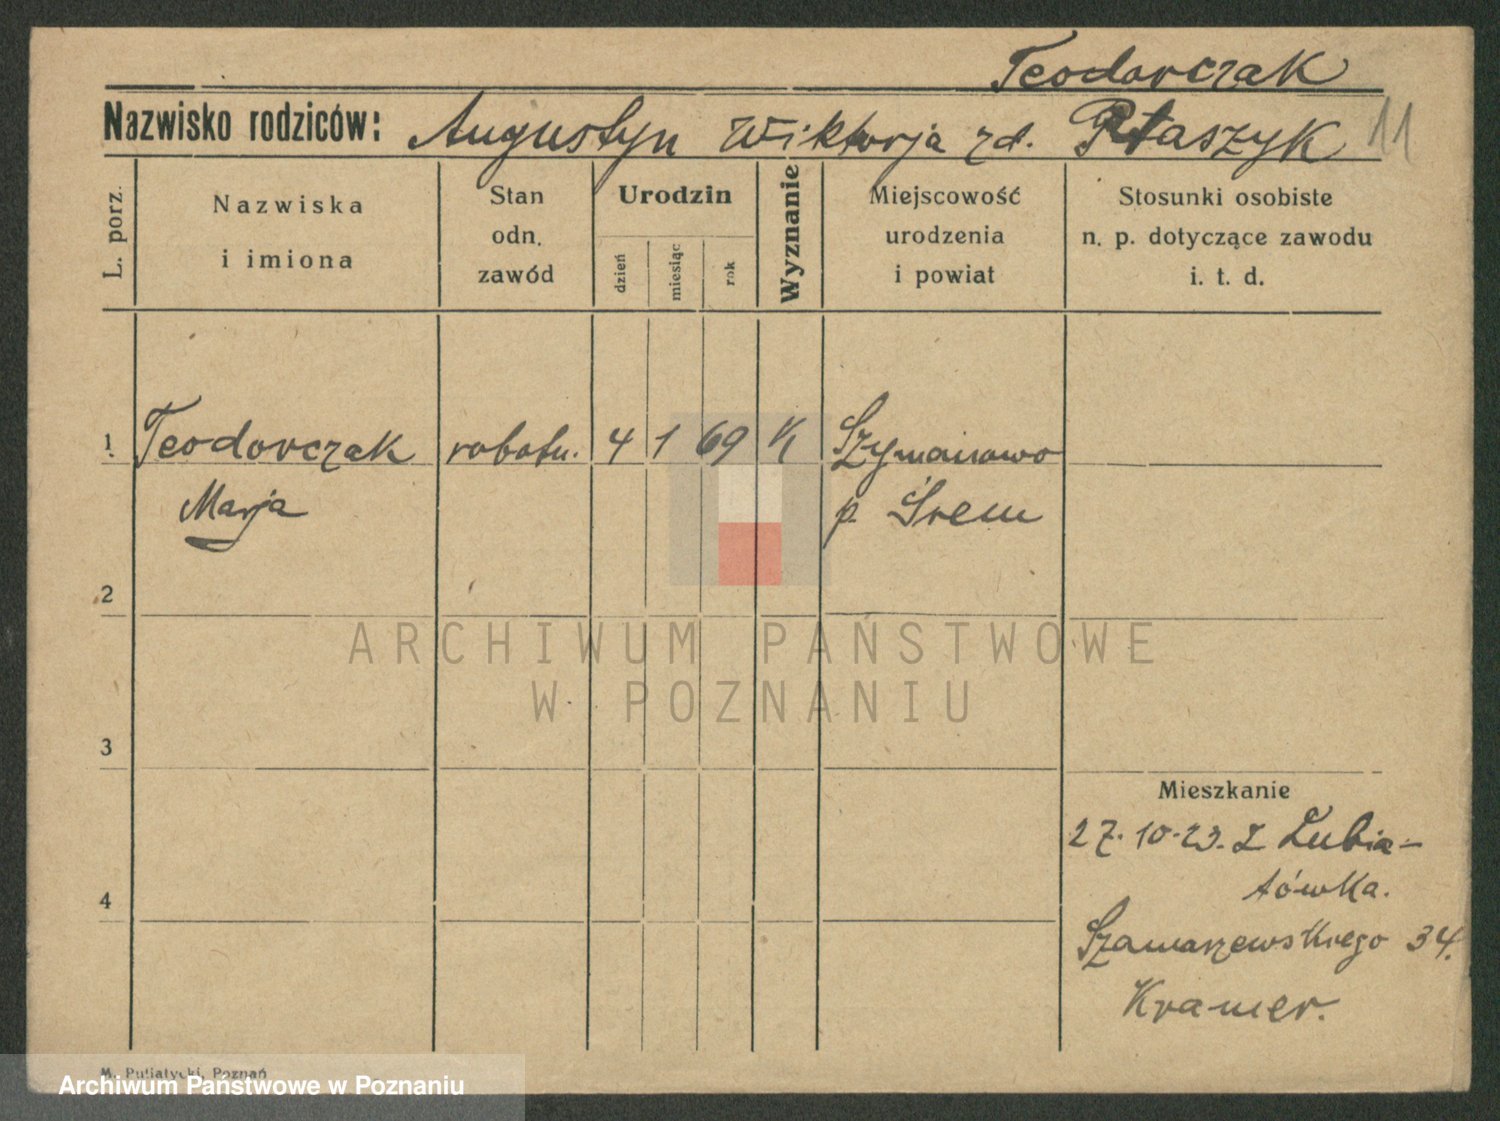 Teodorczak
Nazwisko rodziców: Augustyn Wiktorja zd. Ptaszyk 11
L. porz.
Nazwiska
i imiona
Stan
odn.
zawód
Urodzin
dzień
miesiąc
rok
Wyznanie
Miejscowość
urodzenia
i powiat
Stosunki osobiste
n. p. dotyczące zawodu
i. t. d.
1 Teodorczak robotn. 4 1 69 K Szymanowo
Marja p. Śrem
2
ARCHIWUM PAŃSTWOWE
W POZNANIU
3
Mieszkanie
27.10.23. z Lubia-
tówka.
4
Szamarzewskiego 34.
Kramer.
M. Putiatycki, Poznań
Archiwum Państwowe w Poznaniu